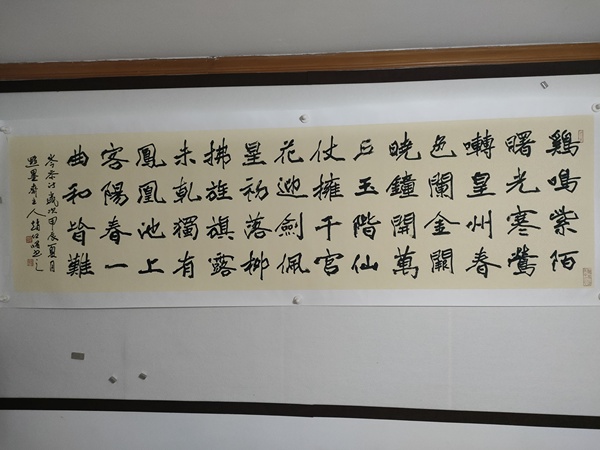 鷄鳴紫陌
曙光寒鶯
囀皇州春
色闌金闕
曉鐘開萬
户玉階仙
仗擁千官
花迎劍佩
星初落柳
拂旌旗露
未乾獨有
鳳凰池上
客陽春一
曲和皆難
岑参诗歲次甲辰夏月
墨齋主人趙